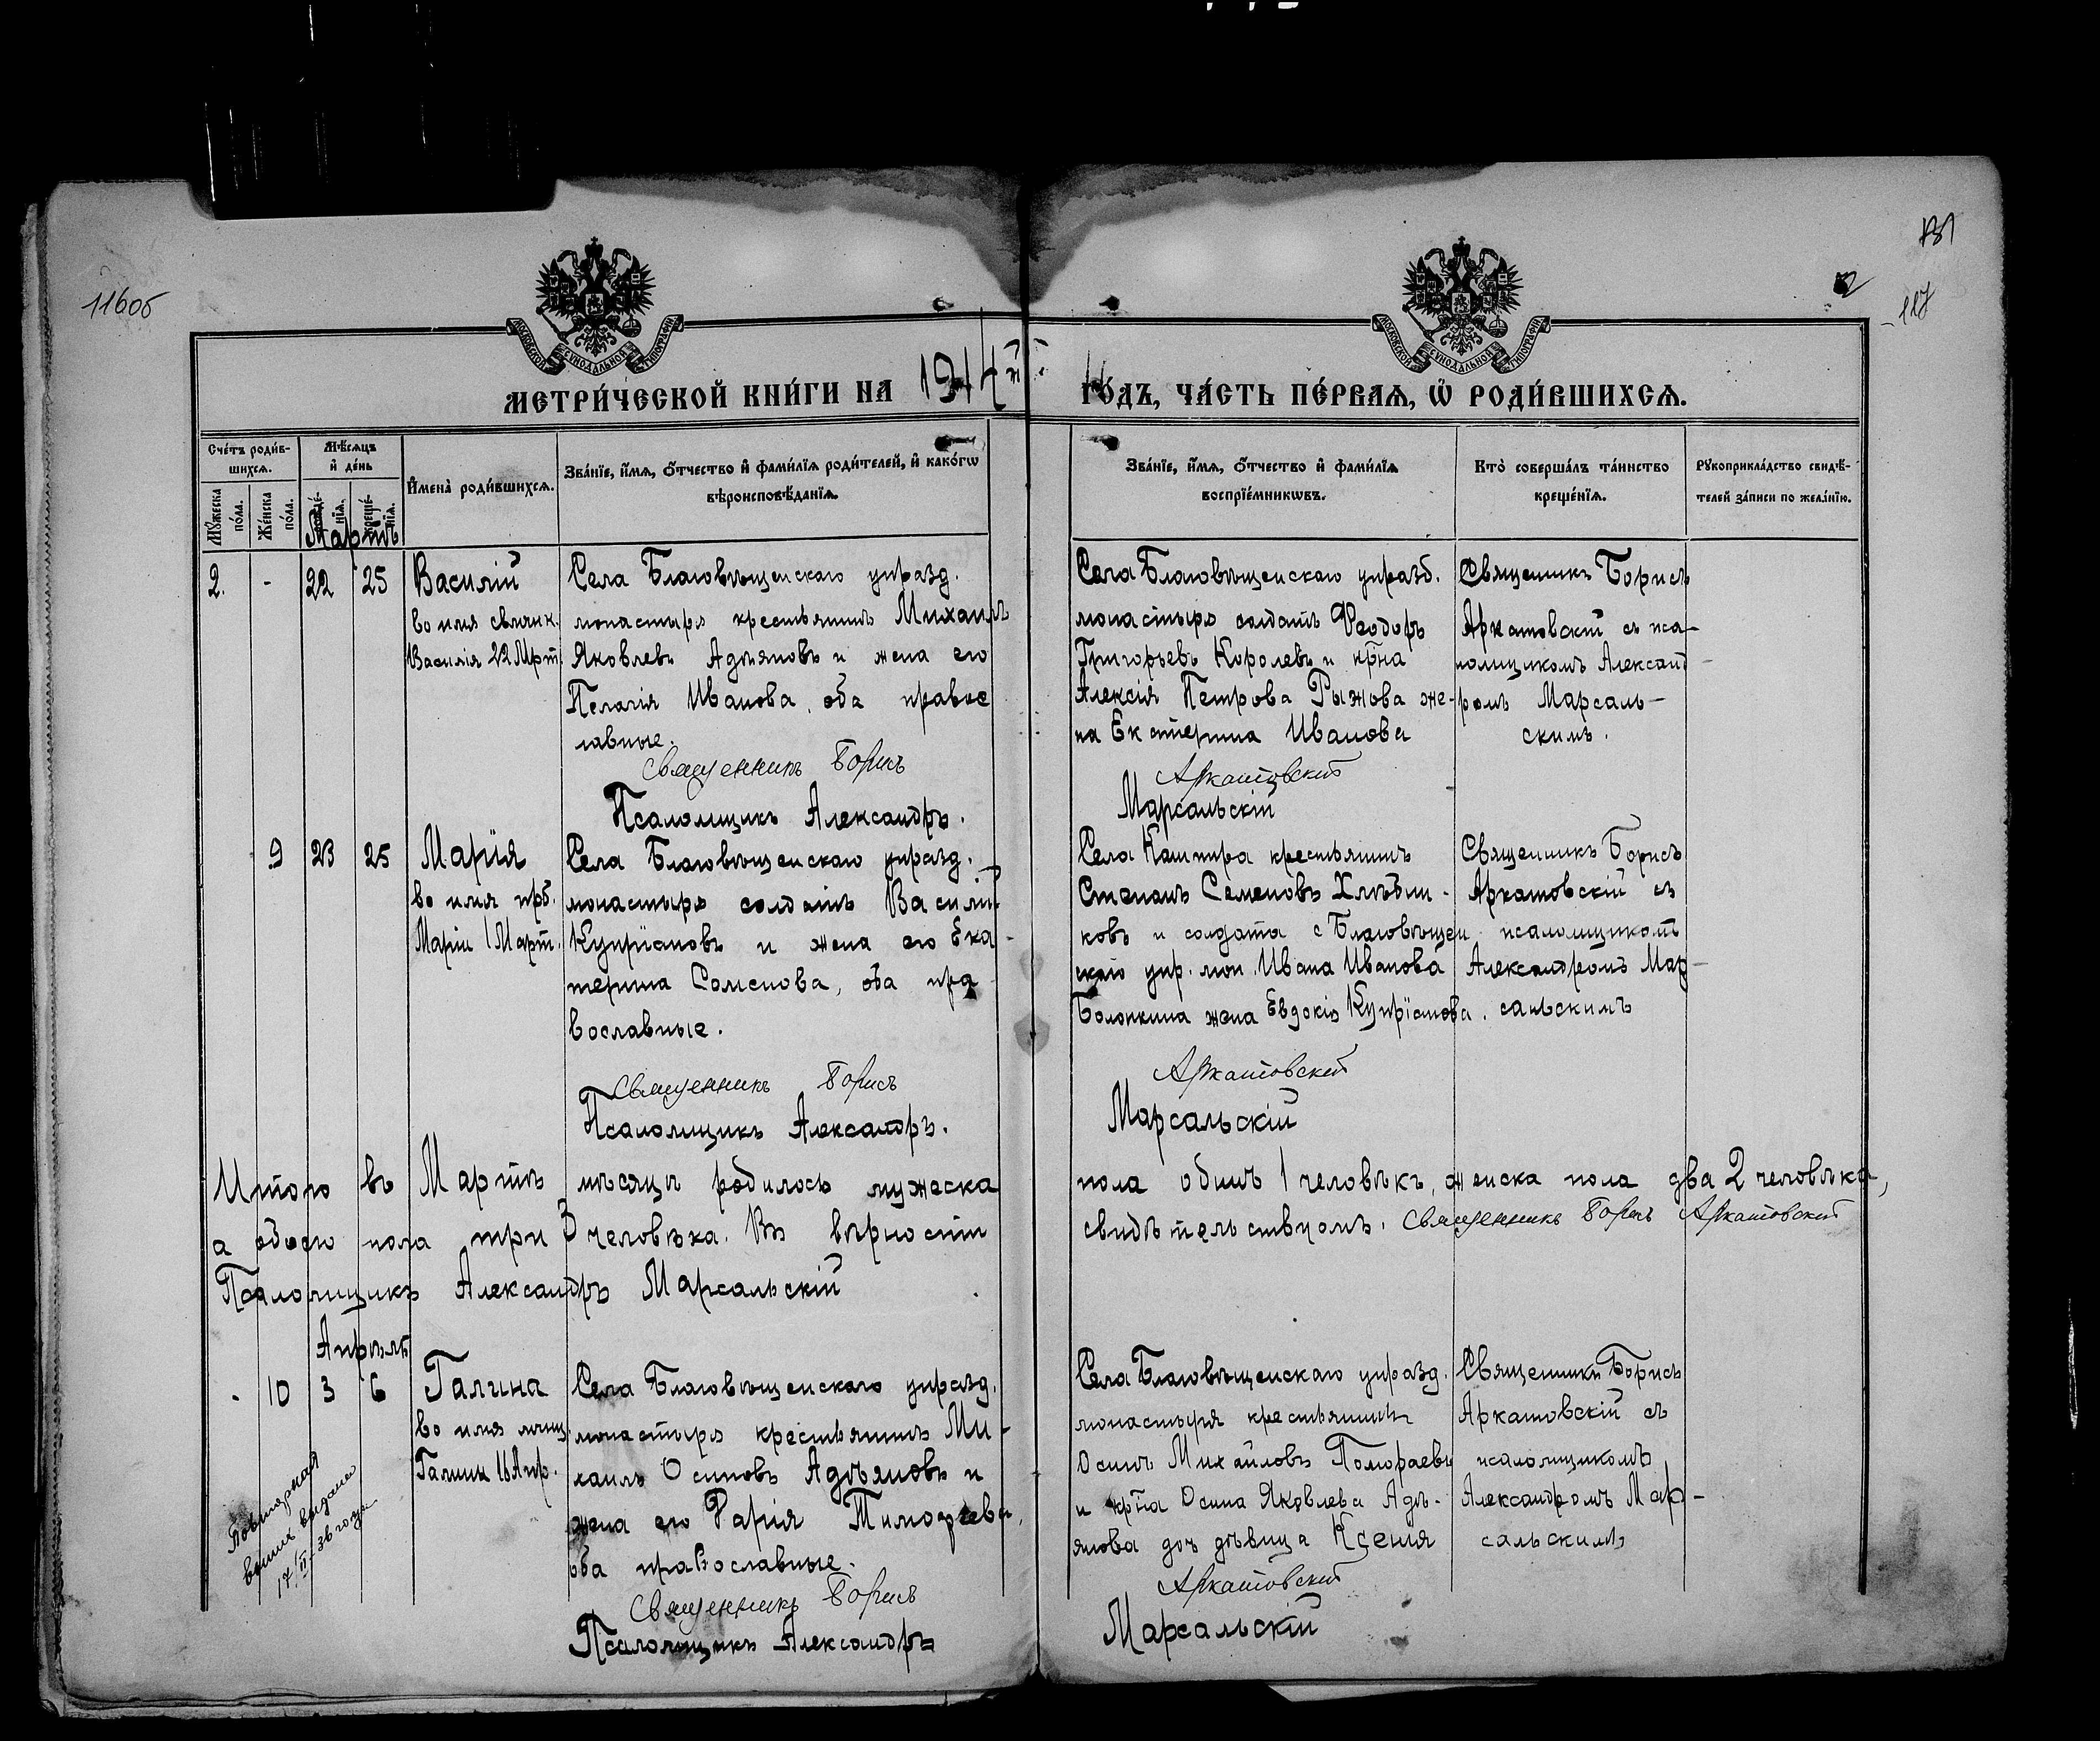 116об
117
МОСКОВСКОЙ СѴНОДАЛЬНОЙ ТИПОГРАФІИ
МОСКОВСКОЙ СѴНОДАЛЬНОЙ ТИПОГРАФІИ
МЕТРИ́ЧЕСКОЙ КНИ́ГИ НА 1914 ГО́ДЪ, ЧА́СТЬ ПЕ́РВАѦ, Ѡ҆ РОДИ́ВШИХСѦ.
Сче́тъ роди́в-
шихсѧ.
Мѣ́сѧцъ
и҆ де́нь
Мꙋ́жеска
по́ла.
Же́нска
по́ла.
рожде́-
нїѧ.
креще́-
нїѧ.
И҆мена̀ роди́вшихсѧ.
Зва́нїе, и҆́мѧ, ѻ҆́тчество и҆ фами́лїѧ роди́телей, и҆ како́гѡ
вѣроисповѣ́данїѧ.
Зва́нїе, и҆́мѧ, ѻ҆́тчество и҆ фами́лїѧ
воспрїе́мникѡвъ.
Кто̀ соверша́лъ та́инство
креще́нїѧ.
Рꙋкоприкла́дство свидѣ́-
телей за́писи по жела́нїю.
Мартъ
2. - 22 25
Василій
во имя свящ.
Василія 22 Мрт.
Села Благовѣщенскаго упразд.
монастыря крестьянинъ Михаилъ
Яковлевъ Адѣяновъ и жена его
Пелагія Иванова, оба правос
лавные.
Священникъ Борисъ
Псаломщикъ Александръ.
Села Благовѣщенскаго упразд.
монастыря солдатъ Ѳеодоръ
Григорьевъ Королевъ и крⷭ҇на
Алексія Петрова Рыжова же-
на Екатерина Иванова
Аркатовскій
Марсальскій
Священникъ Борисъ
Аркатовскій съ пса-
ломщикомъ Александ-
ромъ Марсаль-
скимъ.
9 23 25
Марія
во имя прб.
Маріи 1 Март.
Села Благовѣщенскаго упразд.
монастыря солдатъ Василій
Купріяновъ и жена его Ека-
терина Семенова, оба пра-
вославные.
Священникъ Борисъ
Псаломщикъ Александръ.
Села Кашпира крестьянинъ
Степанъ Семеновъ Хлѣбни-
ковъ и солдата с Благовѣщен
скаго упр. мон. Ивана Иванова
Болонкина жена Евдокія Купріянова.
Аркатовскій
Марсальскій
Священникъ Борисъ
Аркатовскій съ
псаломщикомъ
Александромъ Мар-
сальскимъ
Итого въ Мартѣ мѣсяцѣ родилось мужеска пола одинъ 1 человѣкъ, женска пола два 2 человѣка,
а обоего пола три 3 человѣка. Въ вѣрности свидѣтельствуемъ. Священникъ Борисъ Аркатовскій
Псаломщикъ Александръ Марсальскій
Апрѣль
- 10 3 6
Галина
во имя мчиц.
Галины 16 Апр.
Села Благовѣщенскаго упразд.
монастыря крестьянинъ Ми-
хаилъ Осиповъ Адѣяновъ и
жена его Тимофеева,
оба православные.
Священникъ Борисъ
Псаломщикъ Александръ
Села Благовѣщенскаго упразд.
монастыря крестьянинъ
Осипъ Михайловъ
и крⷭ҇на Осипа Яковлева Адѣ-
янова доч дѣвица Ксения
Аркатовскій
Марсальскій
Священникъ Борисъ
Аркатовскій съ
псаломщикомъ
Александромъ Мар-
сальскимъ
Повторная
выпись выдана
17/II-36 года